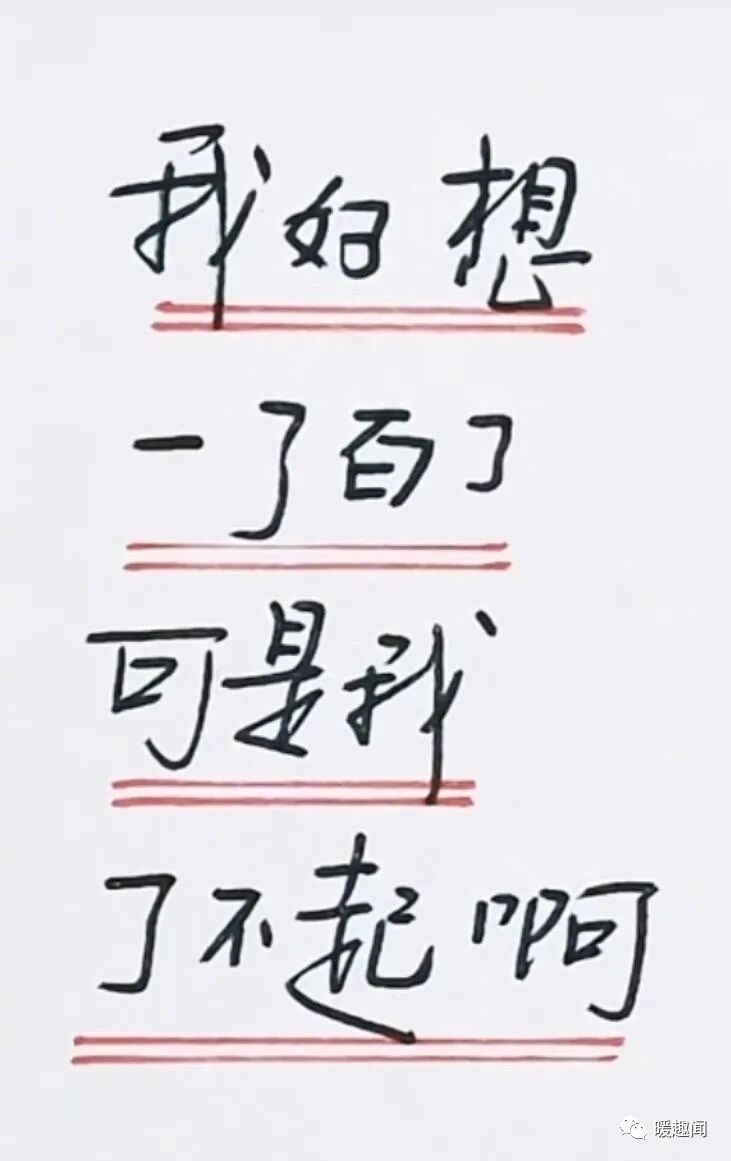 我好想
一了百了
可是我
了不起啊
暖趣闻